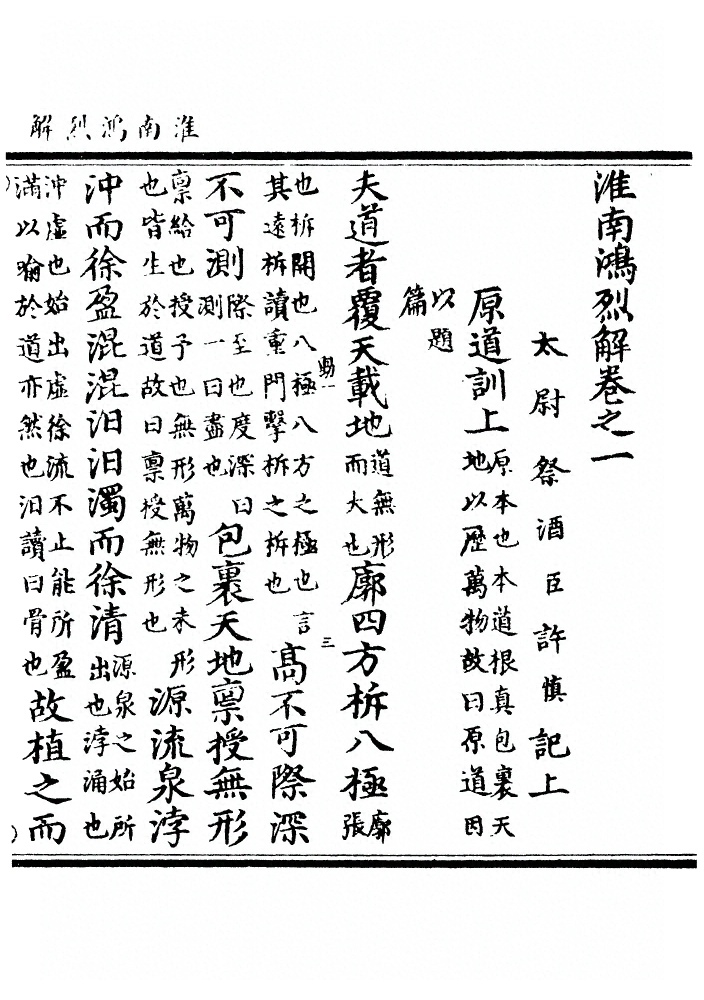 淮南鴻烈解
淮南鴻烈解卷之一
太尉祭酒臣許慎記上
原道訓上原本也本道根真包裹天地以歷萬物故曰原道因
以題篇
夫道者覆天載地道無形而大也廓四方柝八極廓張
也柝開也八極八方之極也言其遠柝讀重門擊柝之柝也高不可際深
三
不可測際至也度深曰測一曰盡也包裹天地稟授無形
稟給也授予也無形萬物之未形也皆生於道故曰稟授無形也源流泉浡
沖而徐盈混混汩汩濁而徐清源泉之始所出也浡涌也
沖虛也始出虛徐流不止能所盈滿以喻於道亦然也汩讀曰骨也故植之而